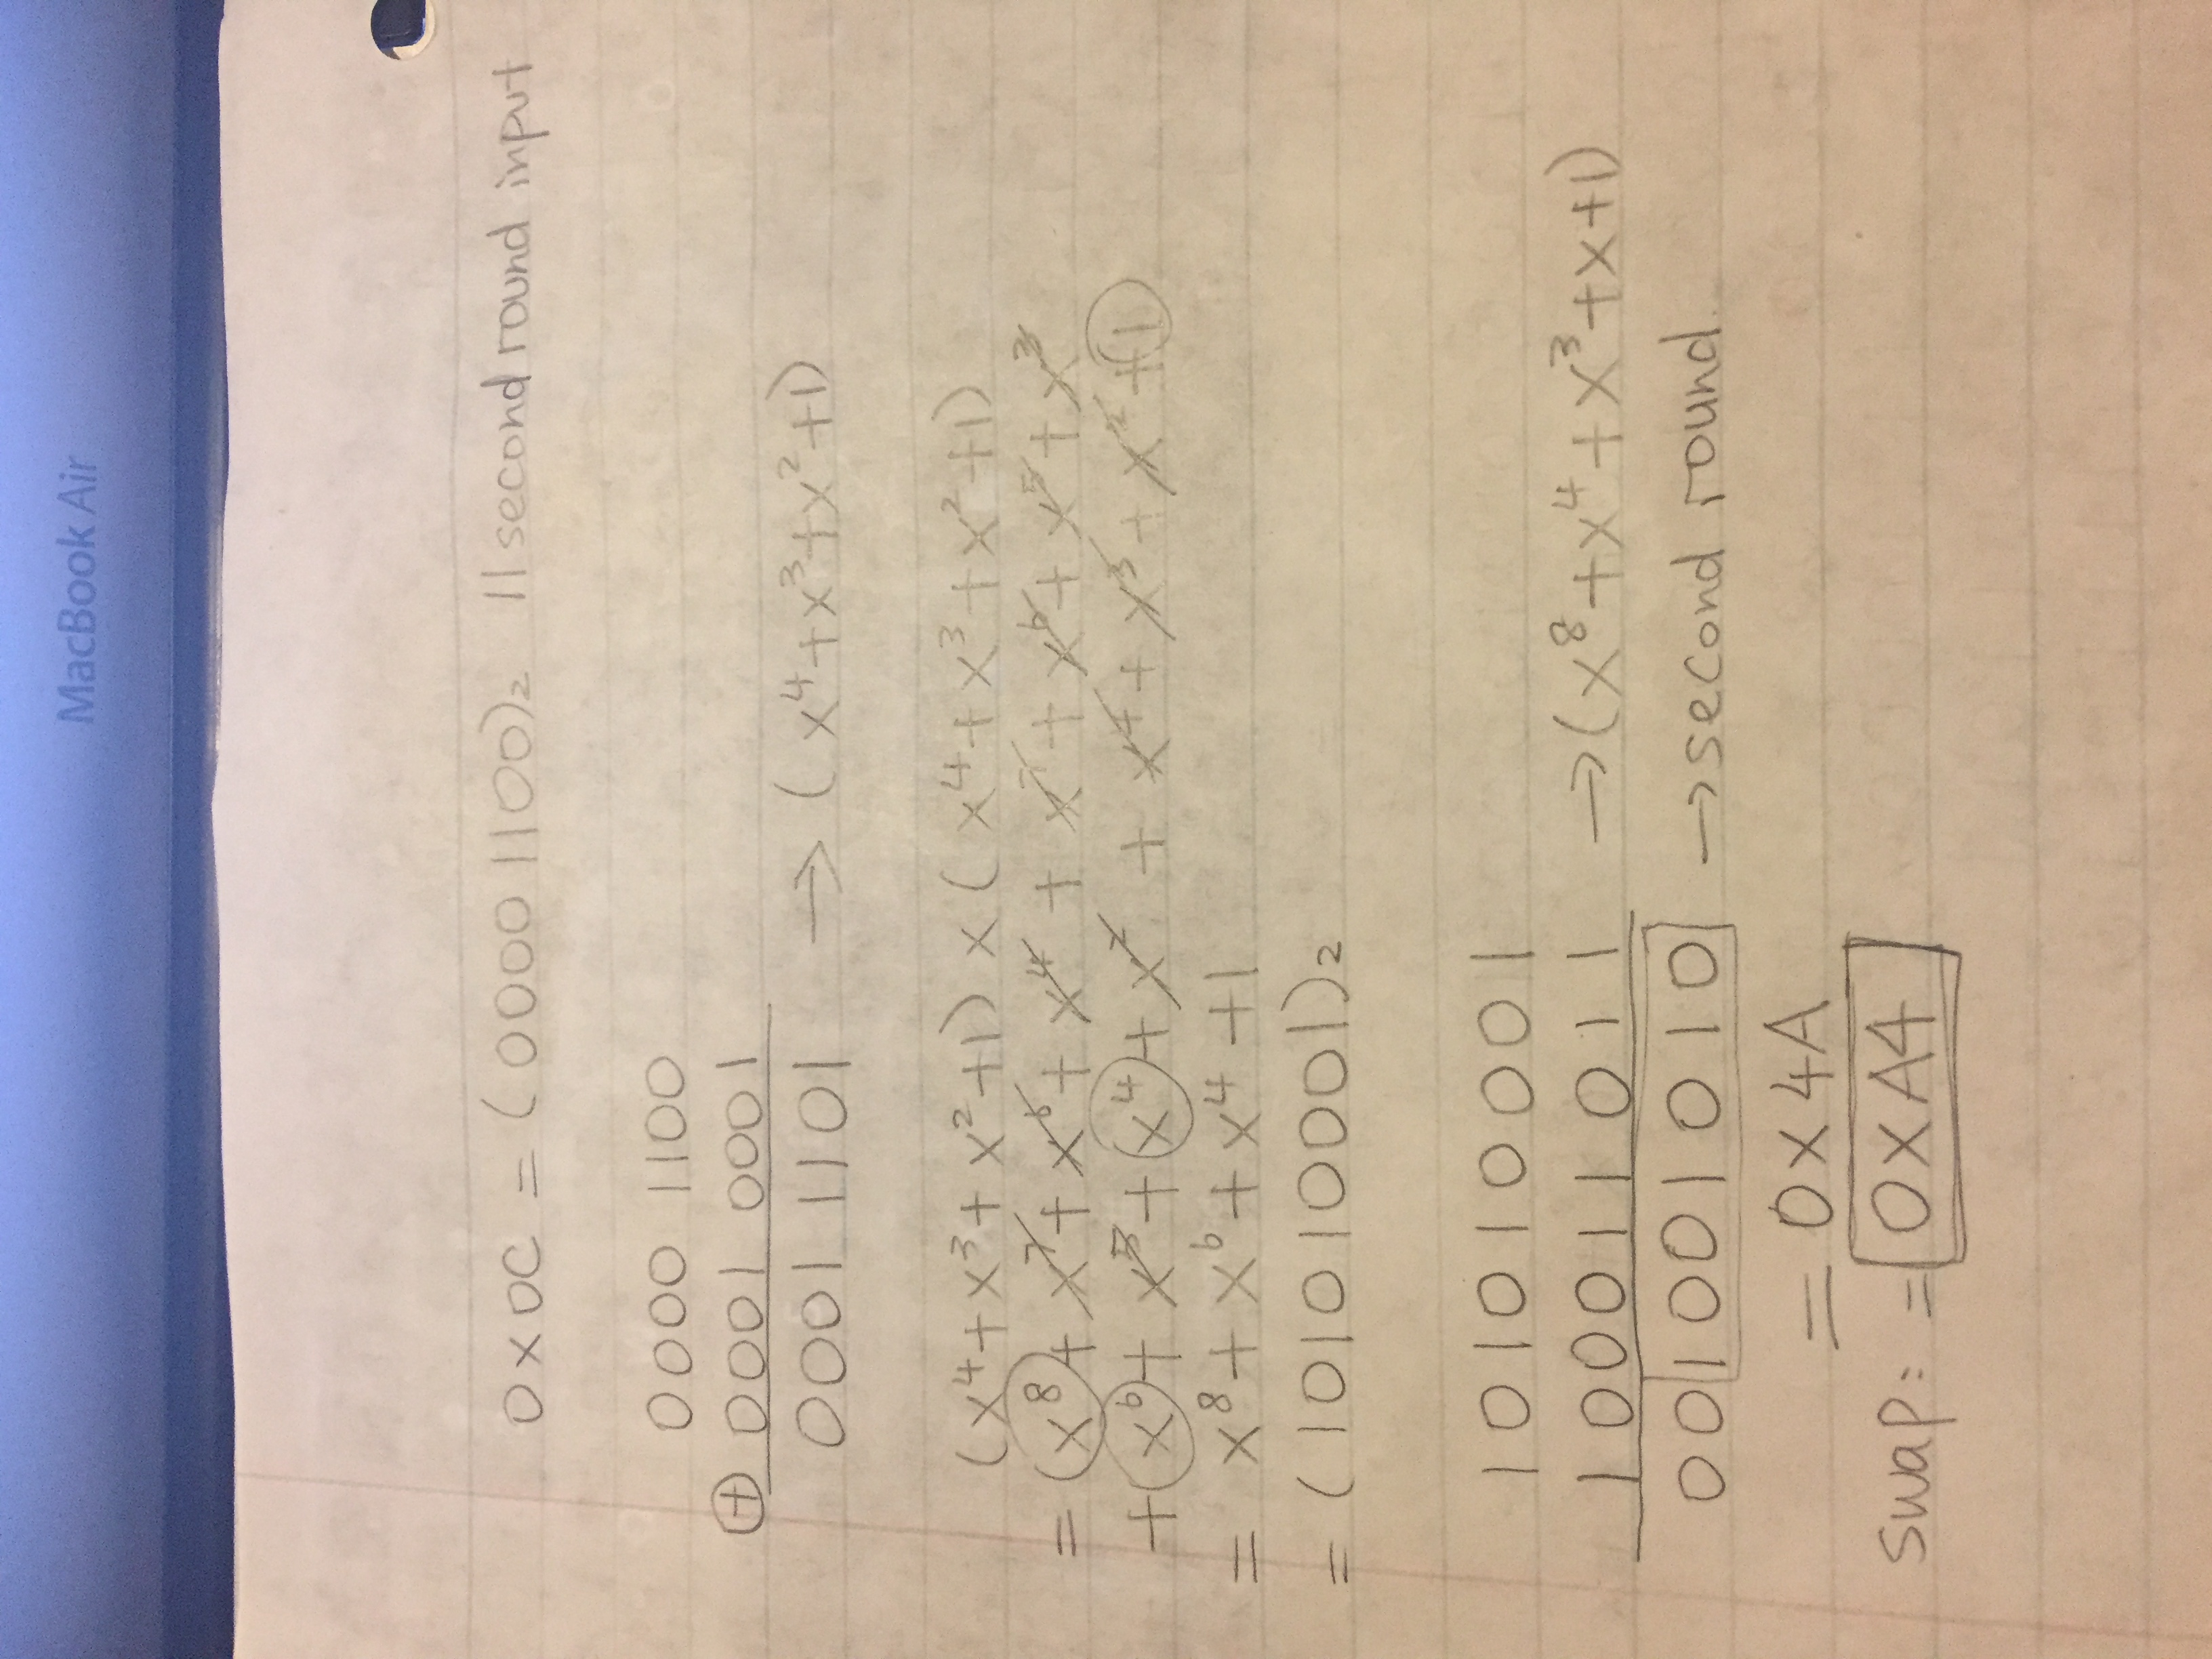 MacBook Air
0x0C = (0000 1100)₂ // second round input
0000 1100
⊕ 0001 0001
0001 1101 → (x⁴+x³+x²+1)
(x⁴+x³+x²+1) x (x⁴+x³+x²+1)
= x⁸ + x⁷ + x⁶ + x⁴ + x⁷ + x⁶ + x⁵ + x³
+ x⁶ + x⁵ + x⁴ + x² + x⁴ + x³ + x² + 1
= x⁸ + x⁶ + x⁴ + 1
= (101010001)₂
1 0 1 0 1 0 0 0 1
1 0 0 0 1 1 0 1 1 → (x⁸+x⁴+x³+x+1)
0 0 1 0 0 1 0 1 0 → second round.
= 0x4A
swap: = 0xA4